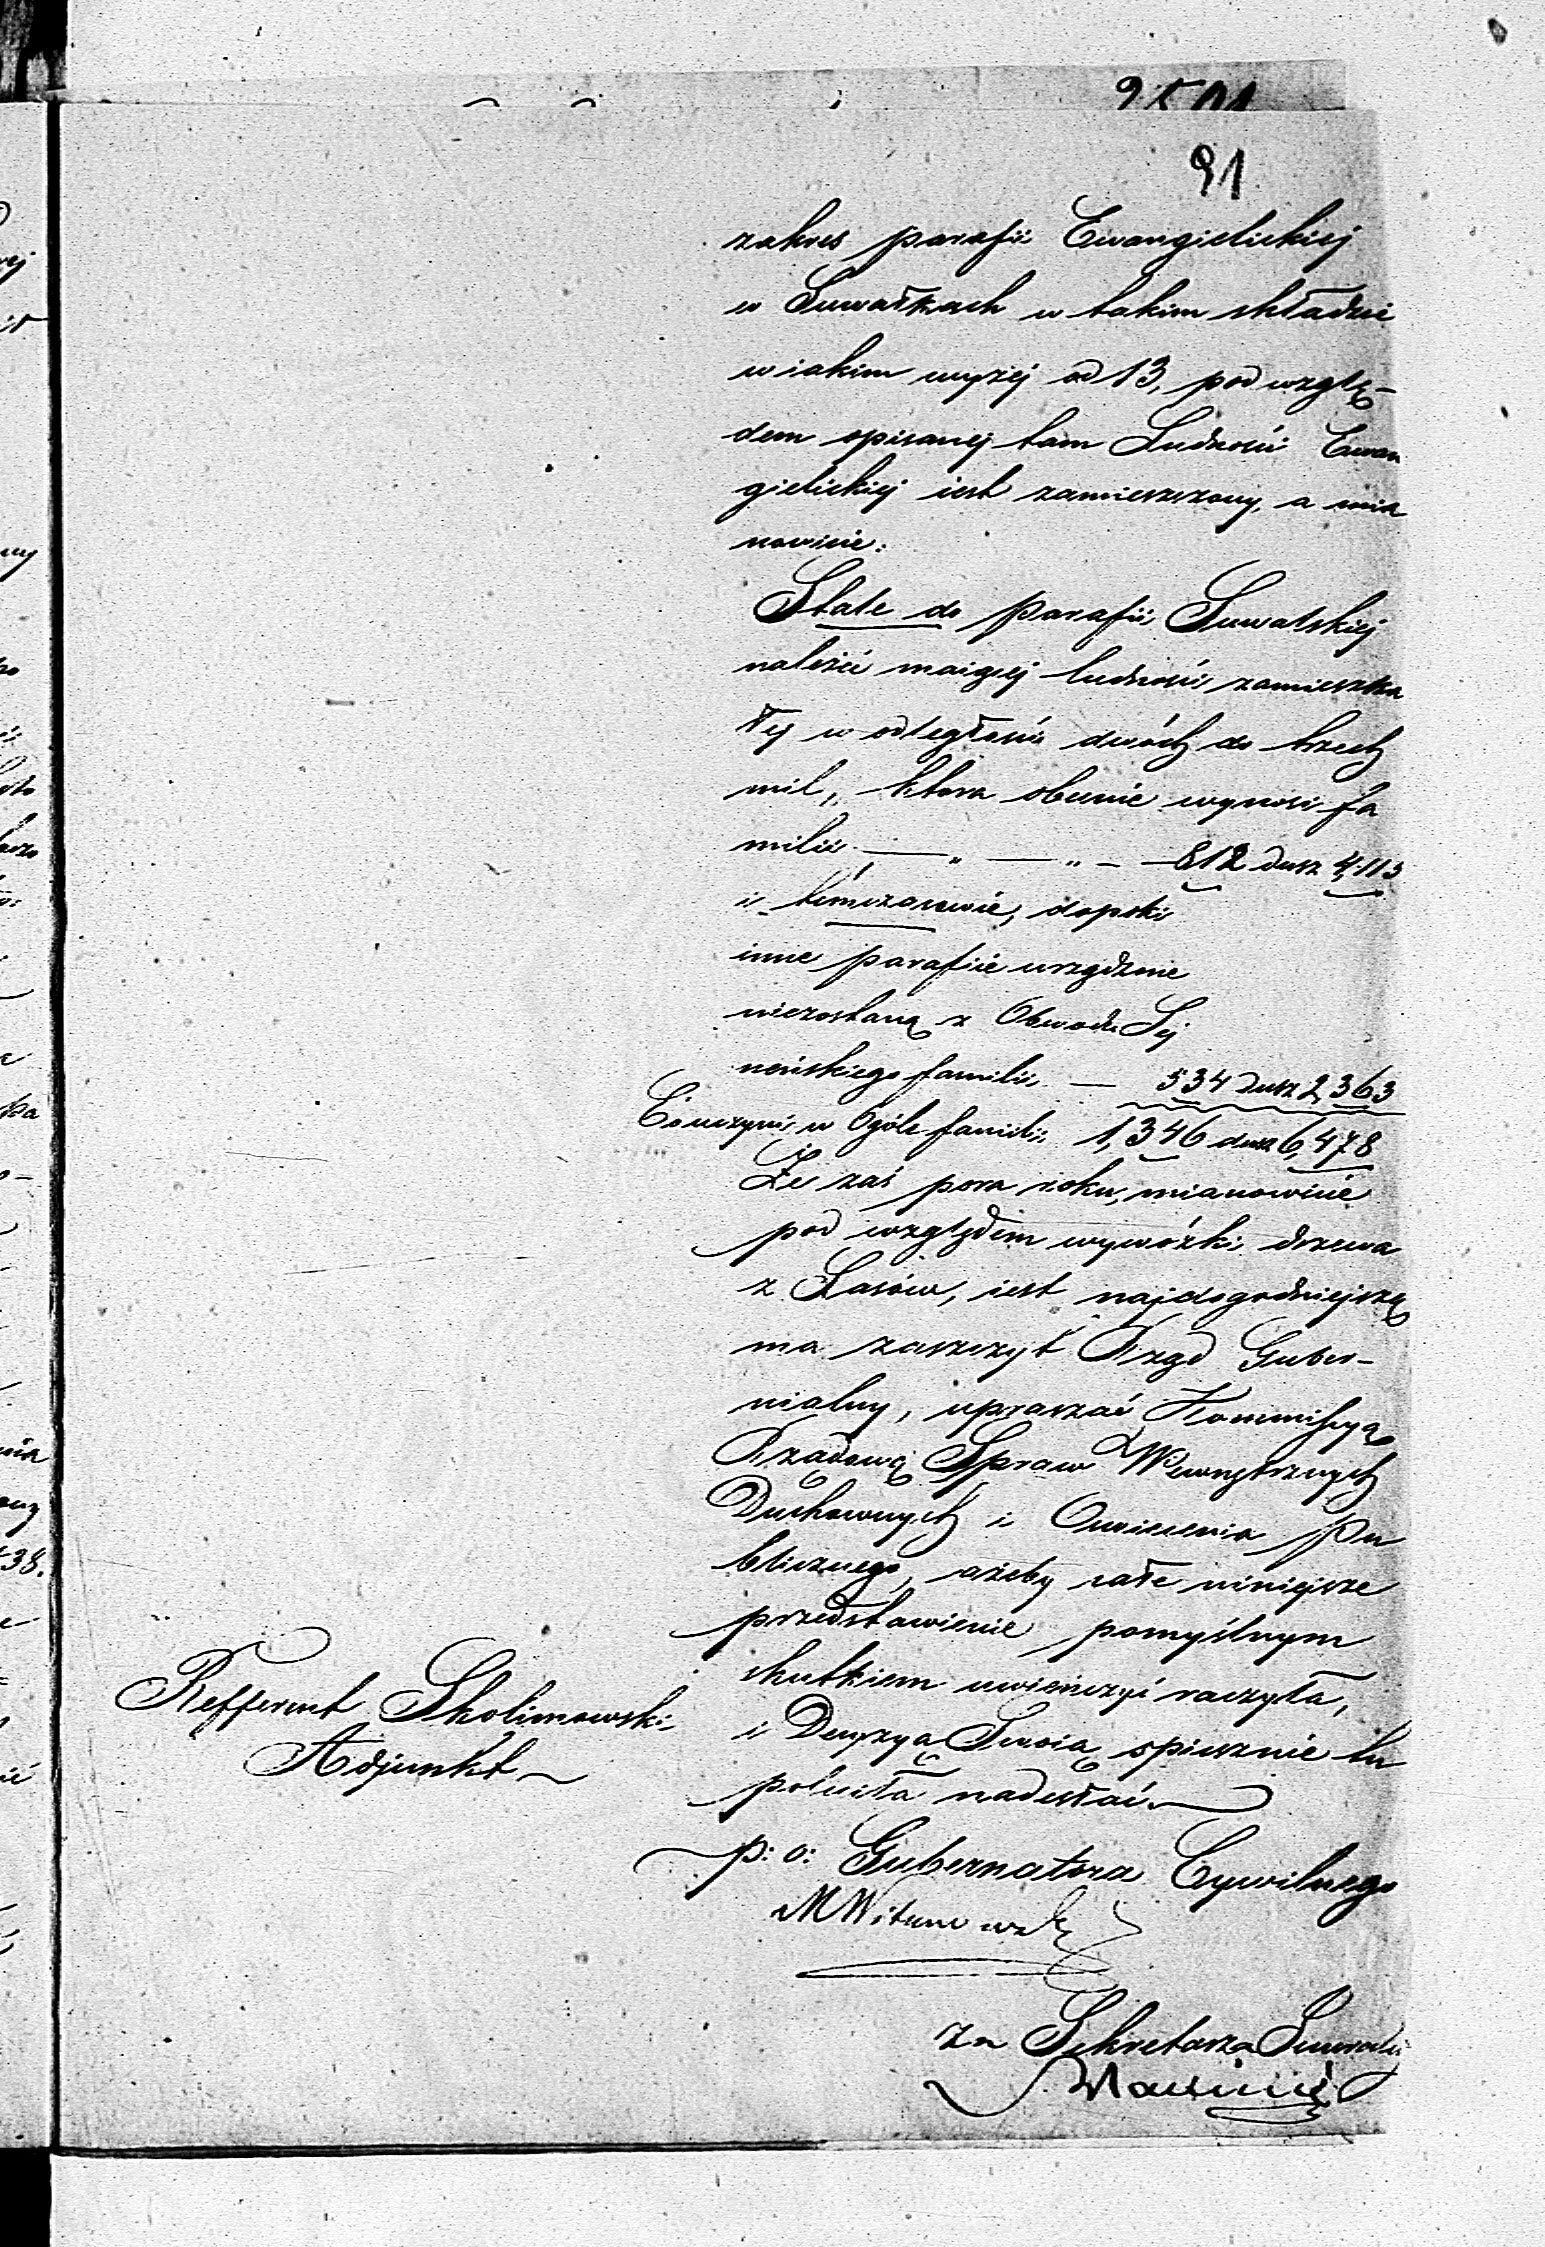 91
zakres parafii Ewangielickiej
w Suwałkach w takim składzie
w iakim wyżej ad 13, pod wzglę-
dem opisanej tam Ludności Ewan
gielickiej iest zamieszczony, a mia
nowicie:
Stale do Parafii Suwalskiej
należéć maiącej ludności zamieszka
łej w odległości dwóch do trzech
mil, ktora obecnie wynosi fa
milii — „ — „ — 812 dusz 4,115
i timczasowie, dopóki
inne parafiie urządzone
niezostaną z Obwodu Sej
neńskiego familii — 534 dusz 2,363
Co uczyni w Ogóle familii 1,346 dusz 6,478
Że zaś pora roku, mianowicie
pod względem wywózki drzewa
z Lasów, iest najdogodniejszą
ma zaszczyt Rząd Guber-
nialny, upraszać Kommissyą
Rządową Spraw Wewnętrznych
Duchownych i Oświecenia Pu
blicznego, ażeby całe niniejsze
przedstawienie pomyślnym
skutkiem uwieńczyć raczyła,
i Decyzyą Swoią spiesznie tu
poleciła nadesłać.
Refferent Skolimowski
Adjunkt
p: o: Gubernatora Cywilnego
za Sekretarza